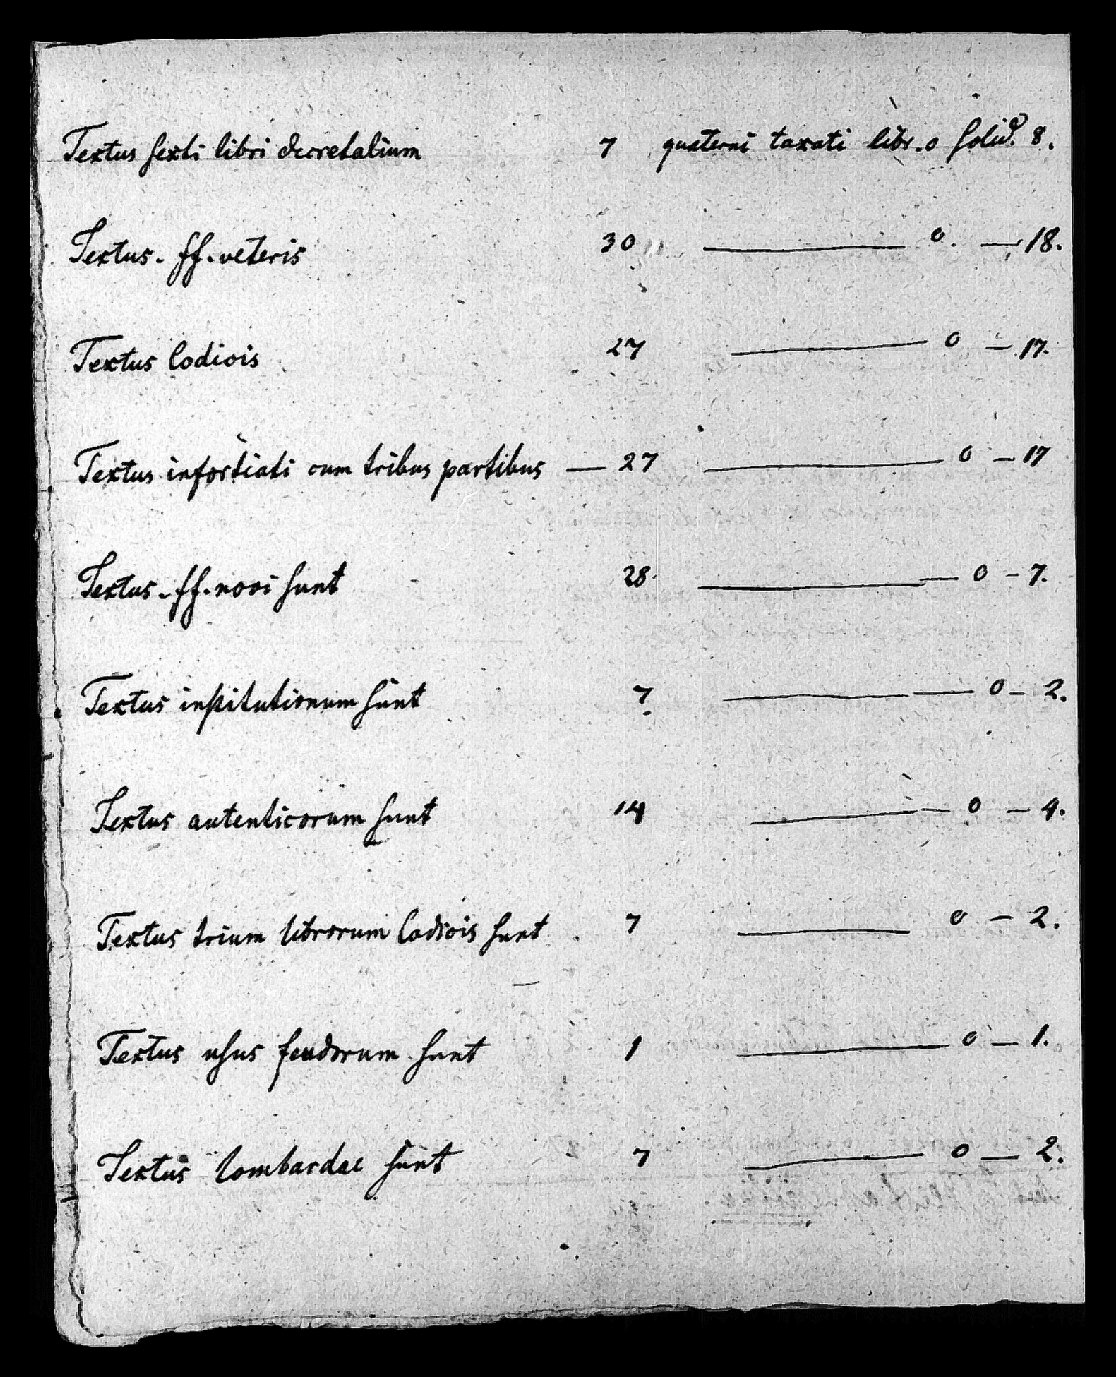 Textus sexti libri decretalium 7 quaterni taxati libr. 0 solid. 8.
Textus. ff. veteris 30 — 0. — 18.
Textus Codicis 27 — 0 — 17.
Textus infortiati cum tribus partibus — 27 — 0 — 17
Textus. ff. novi sunt 28 — 0 — 7.
Textus institutionum sunt 7 — 0 — 2.
Textus autenticorum sunt 14 — 0 — 4.
Textus trium librorum Codicis sunt 7 — 0 — 2.
Textus usus feudorum sunt 1 — 0 — 1.
Textus Lombardae sunt 7 — 0 — 2.